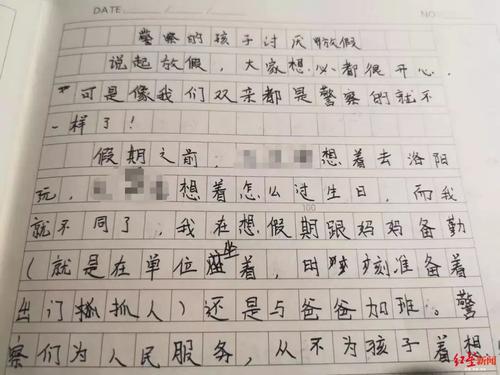 DATE
NO
警察的孩子讨厌放假
说起放假，大家想必都很开心，
可是像我们双亲都是警察的就不
一样了！
假期之前，想着去洛阳
玩，想着怎么过生日，而我
就不同了，我在想假期跟妈妈备勤
（就是在单位坐着，时时刻刻准备着
出门抓人）还是与爸爸加班。警
察们为人民服务，从不为孩子着想
100
红星新闻